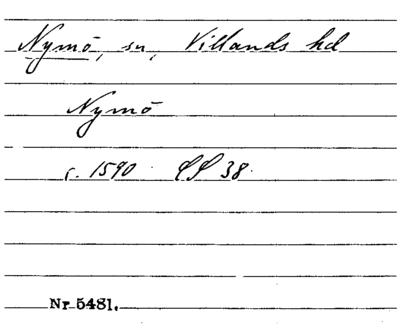 Nymö, sn, Villands hd
Nymö
c. 1590 SS 38.
Nr 5481.